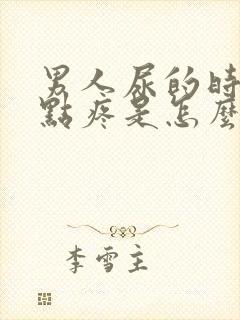 男人尿的時
點疼是怎麼
李雪主